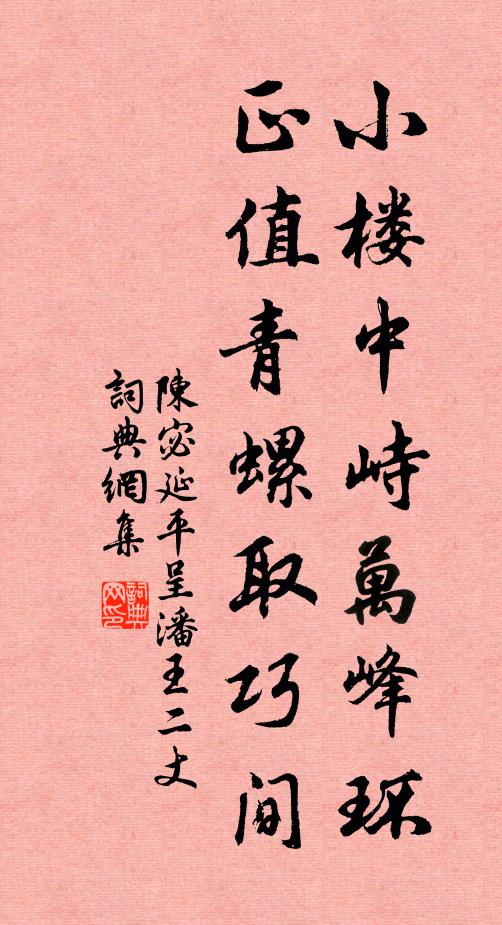 小楼中峙萬峰环
正值青螺取巧間
陳宓延平呈潘王二丈
詞典網集
詞典網印